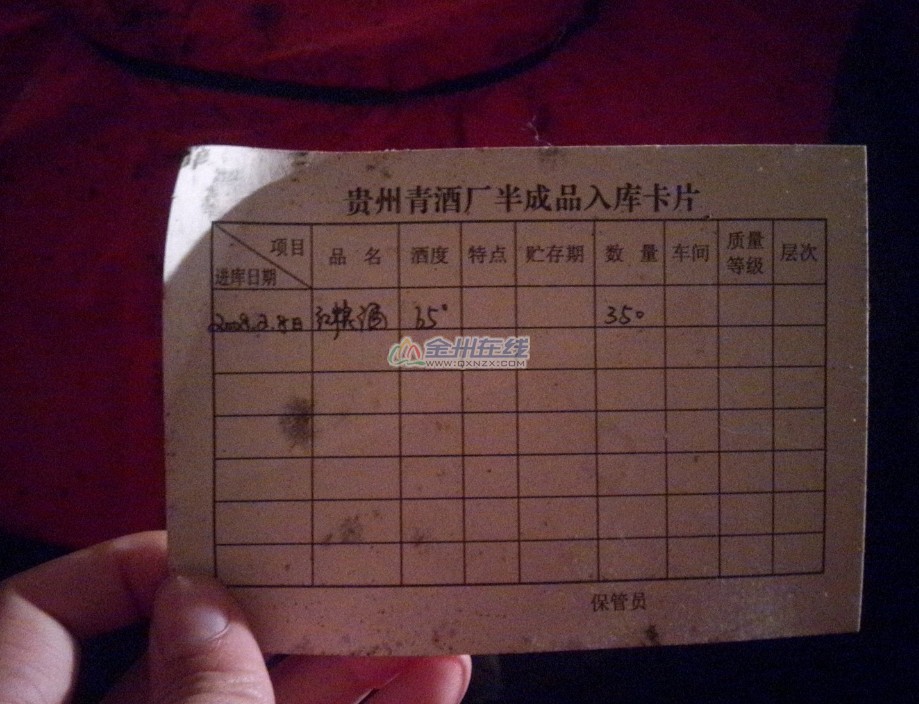 贵州青酒厂半成品入库卡片
项目
进库日期
品名 酒度 特点 贮存期 数量 车间 质量等级 层次
65° 350
金州在线
WWW.QXNZX.COM
保管员